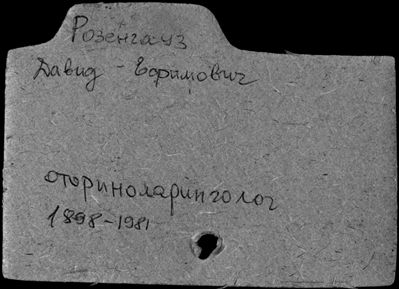 Розенгауз
Давид Ефимович
оториноларинголог
1898-1981